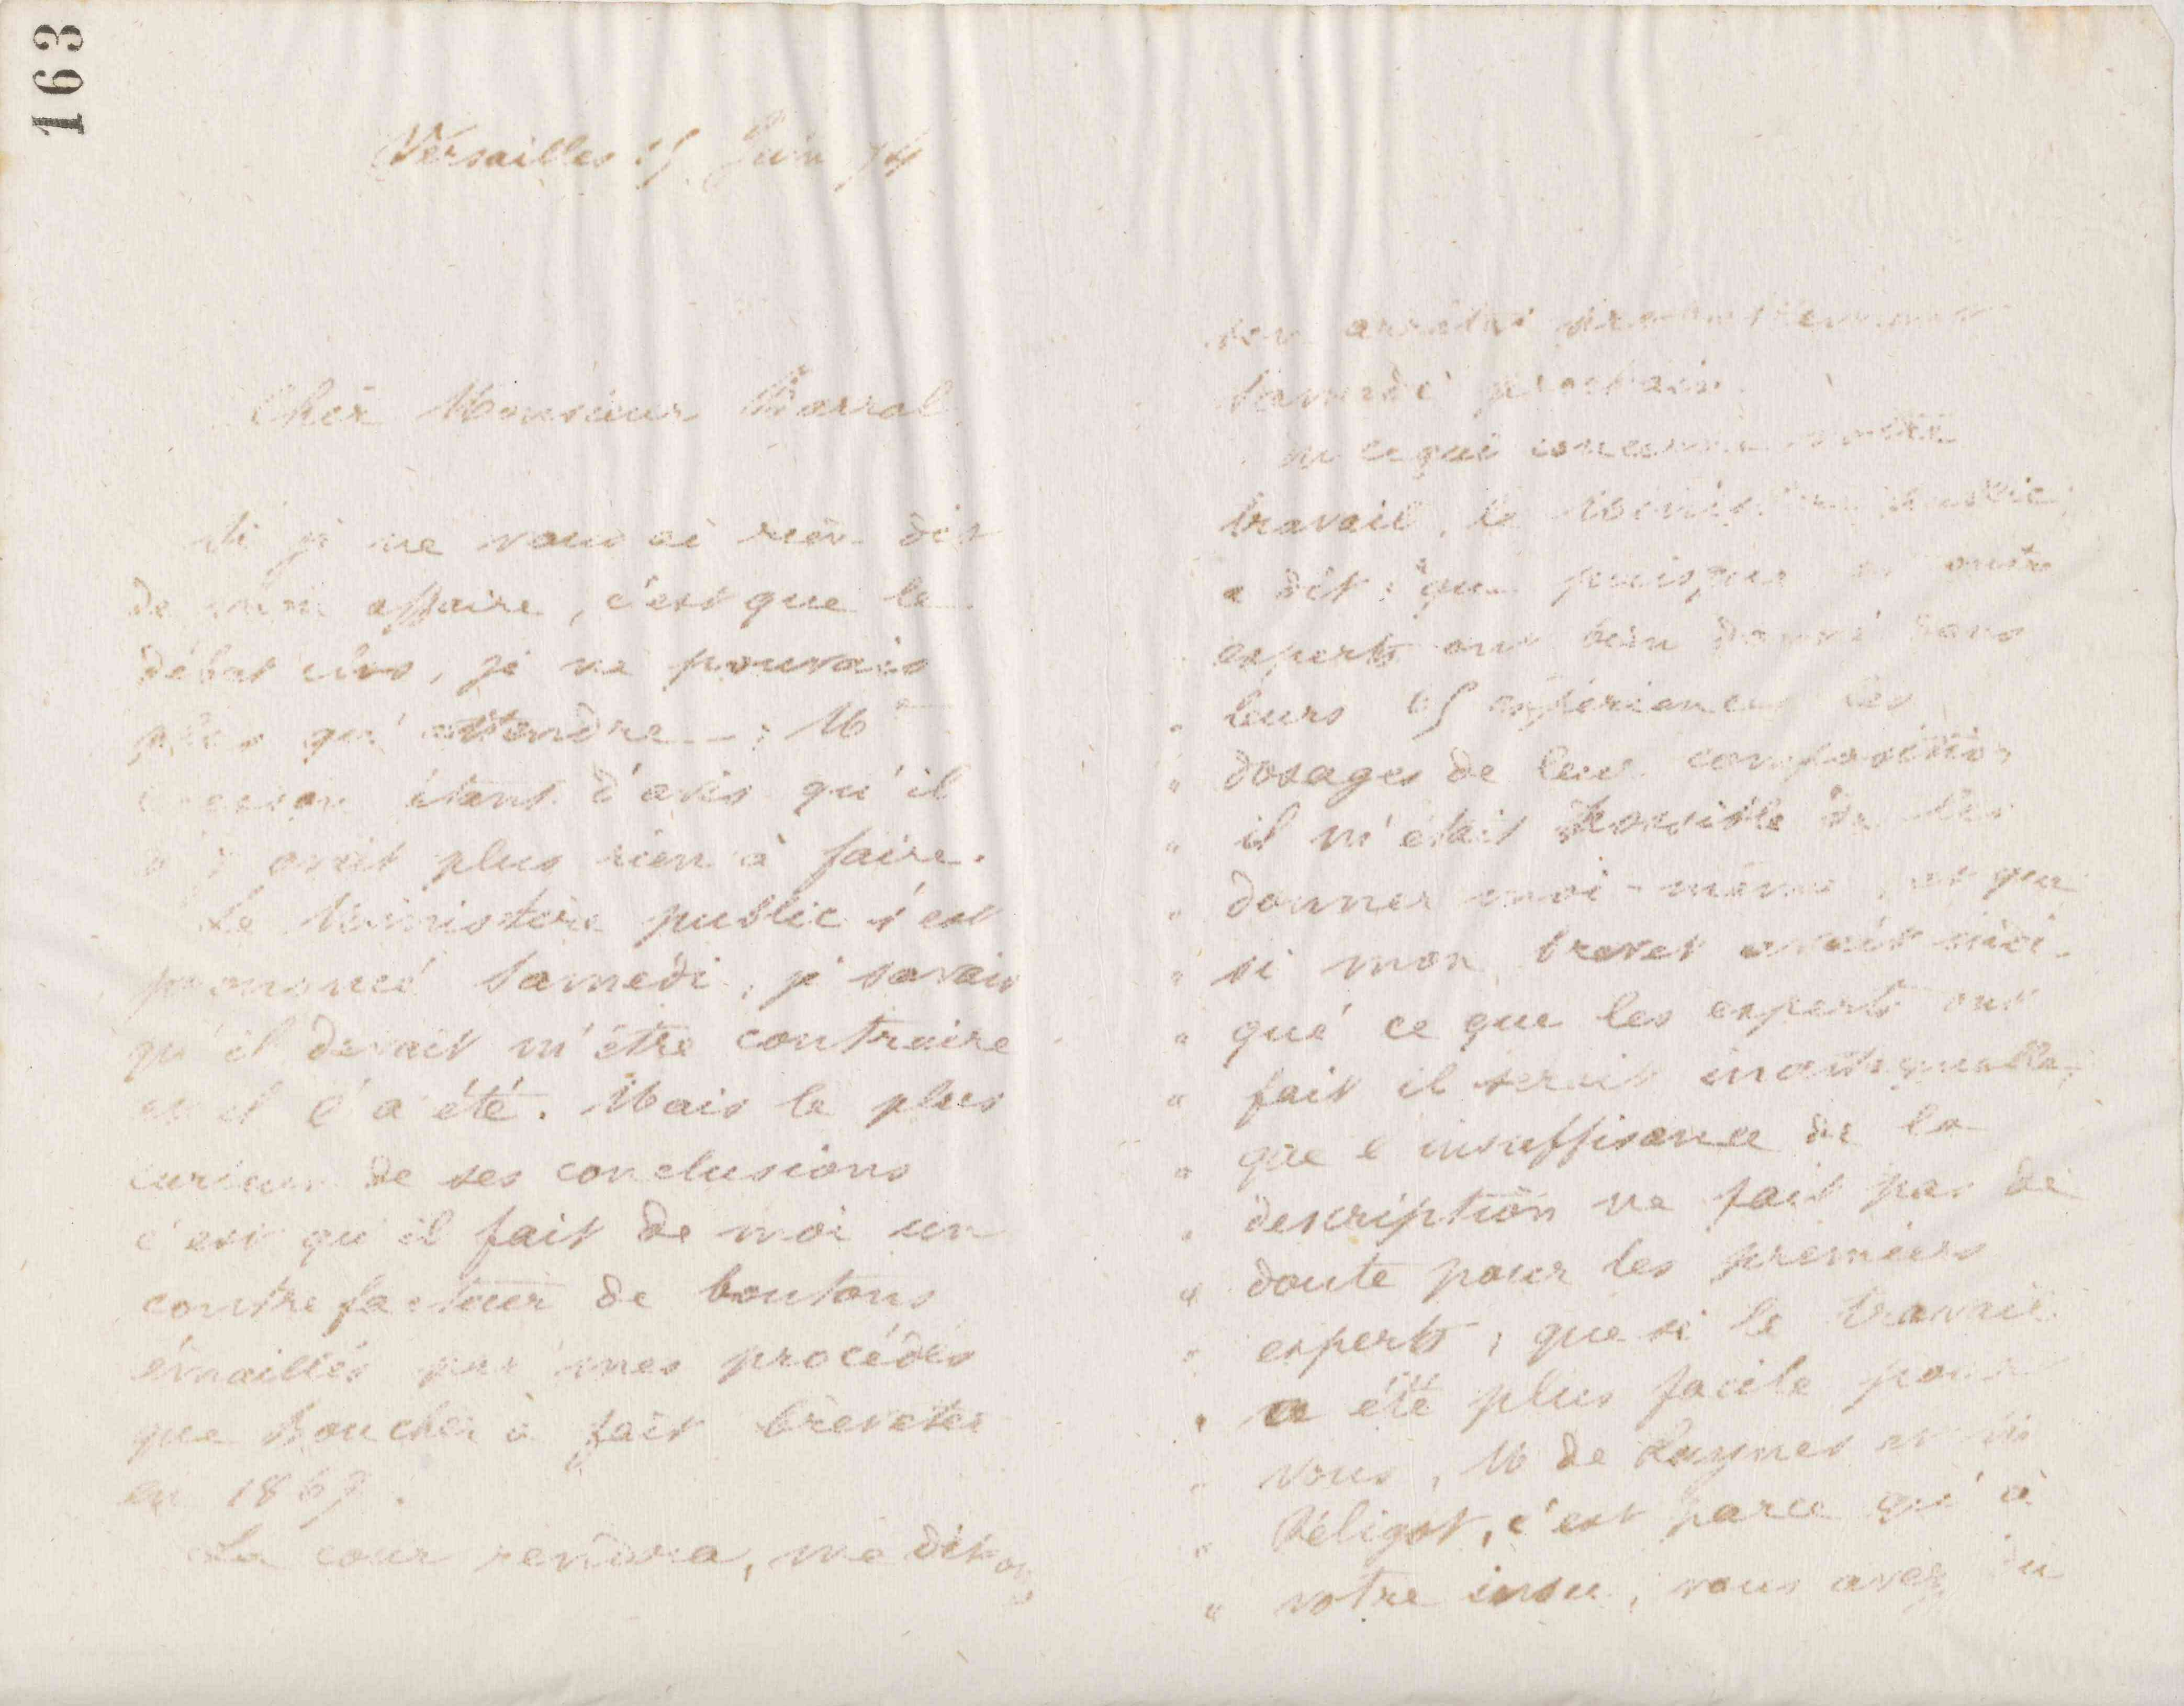 163
Versailles 15 Juin 74
Cher Monsieur Barral
Si je ne vous ai rien dit
de mon affaire, c'est que le
débat clos, je ne pouvais
plus qu'attendre - ; Me
étant d'avis qu'il
n'y avait plus rien à faire.
Le Ministère public s'est
prononcé samedi, je savais
qu'il devait m'être contraire
et il l'a été. Mais le plus
curieux de ses conclusions
c'est qu'il fait de moi un
contrefacteur de boutons
émaillés par mes procédés
que Boucher a fait breveter
en 1867.
La cour rendra, me dit on,
son arrêt
samedi prochain.
en ce qui concerne votre
travail, le Ministère public
a dit : "que puisque
experts ont bien donné dans
" leurs 65 expériences les
" dosages de leur composition
" il m'était possible de les
" donner moi-même, et que
" si mon brevet avait indi-
" qué ce que les experts ont
" fait il serait inattaquable,
" que l'insuffisance de la
" description ne fait pas de
" doute pour les premiers
" experts, que si le travail
" a été plus facile pour
" vous, M de Luynes et M
" Péligot, c'est parce qu'à
" votre insu, vous avez du